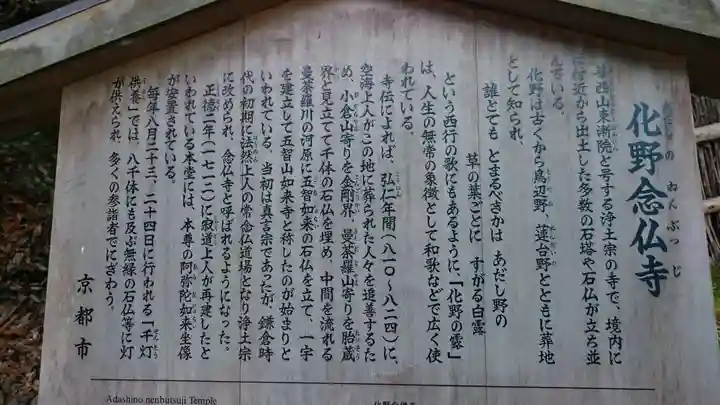 化野念仏寺
あだしの ねんぶつじ
華西山東漸院と号する浄土宗の寺で、境内に
付近から出土した多数の石塔や石仏が立ち並
んでいる。
化野は古くから鳥辺野、蓮台野とともに葬地
として知られ、
誰とても とまるべきかは あだし野の
草の葉ごとに すがる白露
という西行の歌にもあるように、「化野の露」
は、人生の無常の象徴として和歌などで広く使
われている。
寺伝によれば、弘仁年間(八一〇~八二四)に、
空海上人がこの地に葬られた人々を追善するた
め、小倉山寄りを金剛界、曼荼羅山寄りを胎蔵
界と見立てて千体の石仏を埋め、中間を流れる
曼荼羅川の河原に五智如来の石仏を立て、一宇
を建立して五智山如来寺と称したのが始まりと
いわれている。当初は真言宗であったが、鎌倉時
代の初期に法然上人の常念仏道場となり浄土宗
に改められ、念仏寺と呼ばれるようになった。
正徳二年(一七一二)に寂道上人が再建したと
いわれている本堂には、本尊の阿弥陀如来坐像
が安置されている。
毎年八月二十三、二十四日に行われる「千灯
供養」では、八千体にも及ぶ無縁の石仏等に灯
が供えられ、多くの参詣者でにぎわう。
京都市
Adashino nenbutsuji Temple